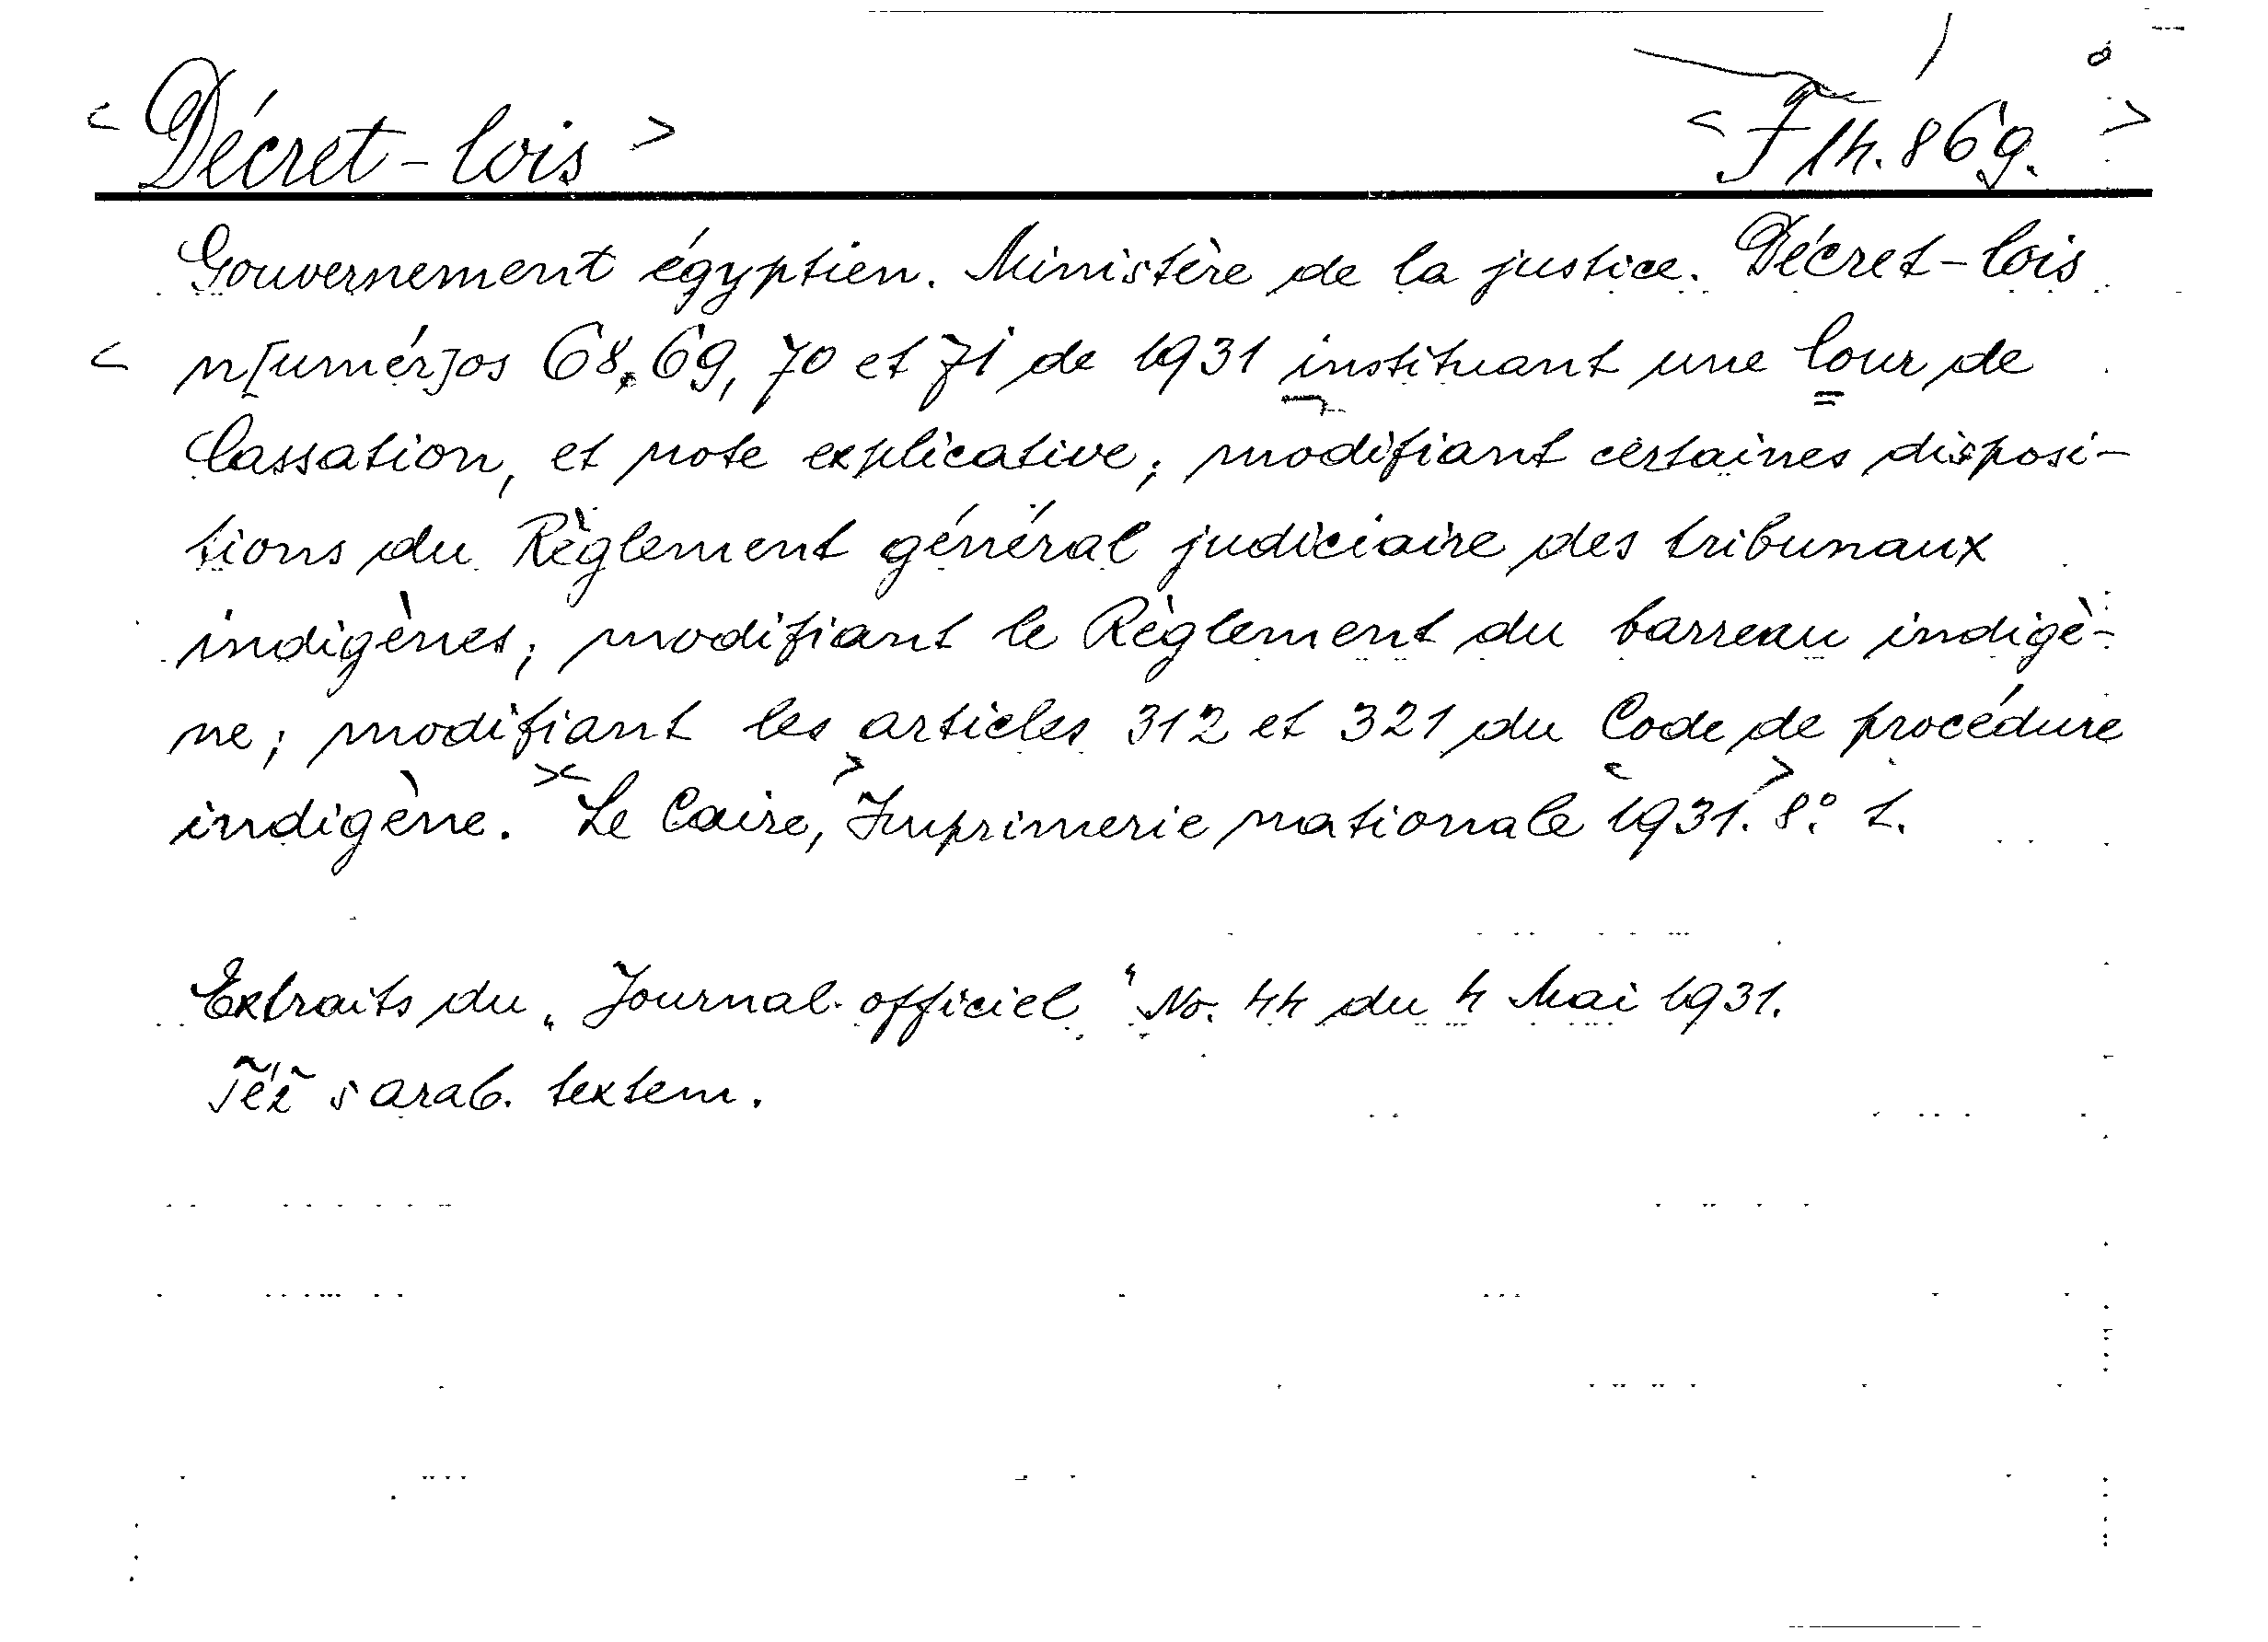 < Décret-lois > < F 14.869. >
Gouvernement égyptien. Ministère de la justice. Décret-lois
< n[umér]os 68, 69, 70 et 71 de 1931 instituant une Cour de
Cassation, et note explicative; modifiant certaines disposi-
tions du Règlement général judiciaire des tribunaux
indigènes; modifiant le Règlement du barreau indigè-
ne; modifiant les articles 312 et 321 du Code de procédure
indigène. >< Le Caire, > Imprimerie nationale < 1931. > 8.° 1.
Extraits du „Journal officiel“ No. 44 du 4 Mai 1931.
Též s arab. textem.